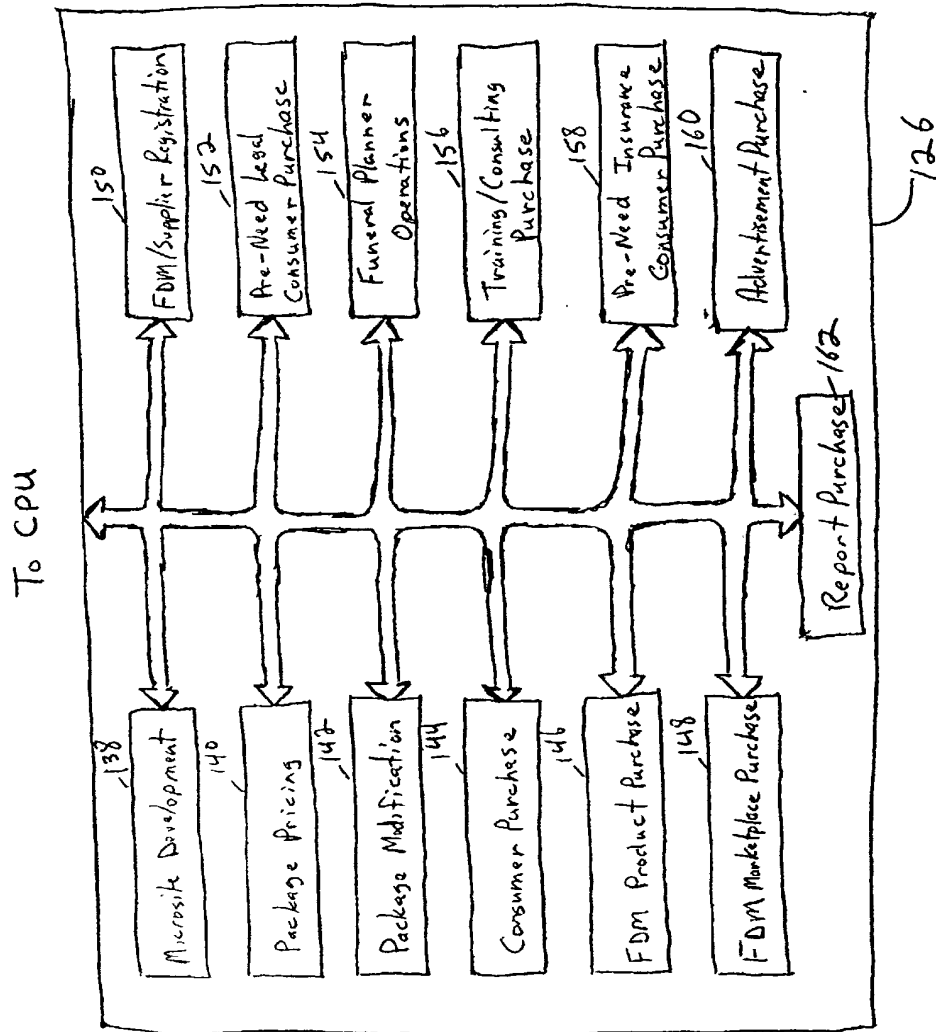 To CPU
138
Microsite Development
140
Package Pricing
142
Package Modification
144
Consumer Purchase
146
FDM Product Purchase
148
FDM Marketplace Purchase
150
FDM/Supplier Registration
152
Pre-Need Legal
Consumer Purchase
154
Funeral Planner
Operations
156
Training/Consulting
Purchase
158
Pre-Need Insurance
Consumer Purchase
160
Advertisement Purchase
Report Purchase
162
126